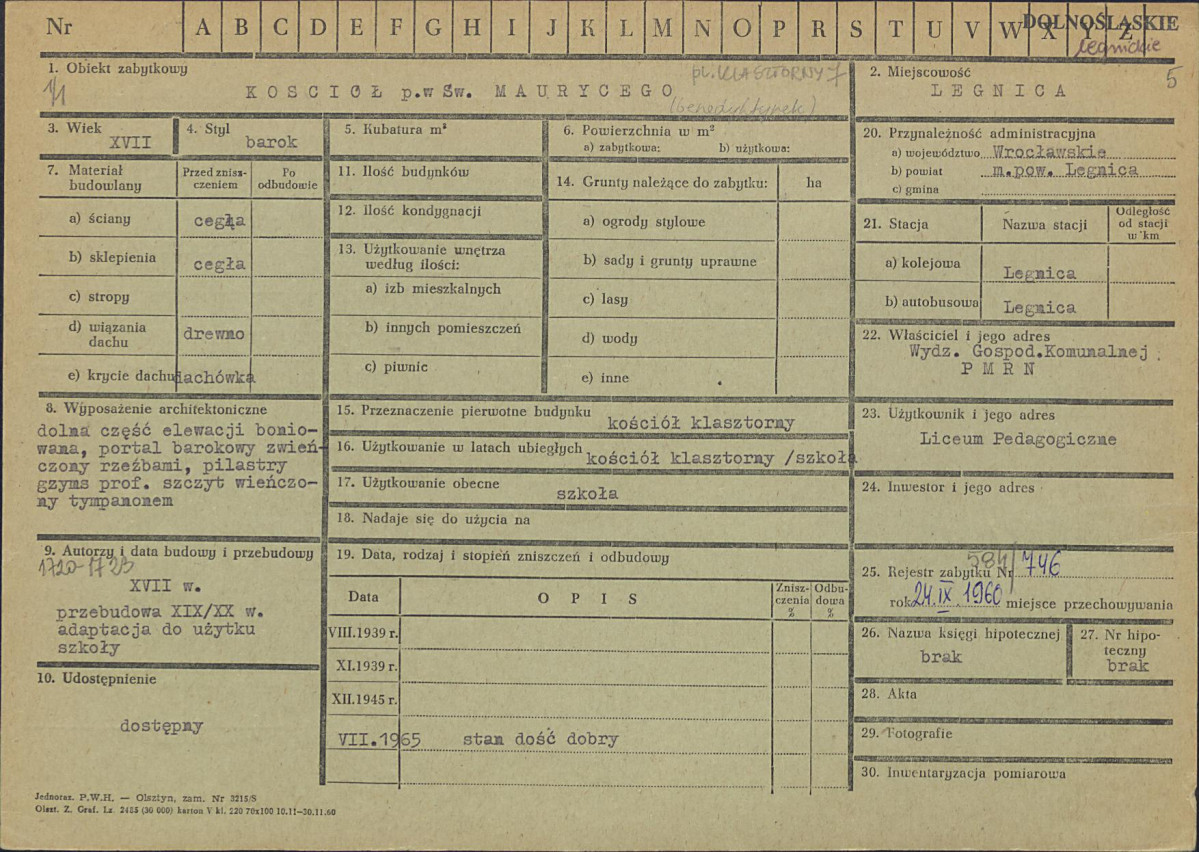 Nr A B C D E F G H I J K L M N O P R S T U V W X Y Z DOLNOŚLĄSKIE
legnickie
1. Obiekt zabytkowy
pl. KLASZTORNY 7
1/1
KOSCIOŁ p.w Św. MAURYCEGO
(benedyktynek)
2. Miejscowość
5
LEGNICA
3. Wiek
XVII
4. Styl
barok
5. Kubatura m³
6. Powierzchnia w m²
a) zabytkowa: b) użytkowa:
20. Przynależność administracyjna
a) województwo Wrocławskie
b) powiat m.pow. Legnica
c) gmina
7. Materiał budowlany
Przed zniszczeniem
Po odbudowie
a) ściany cegła
b) sklepienia cegła
c) stropy
d) wiązania dachu drewno
e) krycie dachu dachówka
11. Ilość budynków
12. Ilość kondygnacji
13. Użytkowanie wnętrza
według ilości:
a) izb mieszkalnych
b) innych pomieszczeń
c) piwnic
14. Grunty należące do zabytku: ha
a) ogrody stylowe
b) sady i grunty uprawne
c) lasy
d) wody
e) inne
21. Stacja Nazwa stacji Odległość od stacji w km
a) kolejowa Legnica
b) autobusowa Legnica
22. Właściciel i jego adres
Wydz. Gospod.Komunalnej
P M R N
8. Wyposażenie architektoniczne
dolna część elewacji bonio-
wana, portal barokowy zwień-
czony rzeźbami, pilastry
gzyms prof. szczyt wieńczo-
ny tympanonem
15. Przeznaczenie pierwotne budynku
kościół klasztorny
16. Użytkowanie w latach ubiegłych
kościół klasztorny /szkoła
17. Użytkowanie obecne
szkoła
18. Nadaje się do użycia na
23. Użytkownik i jego adres
Liceum Pedagogiczne
24. Inwestor i jego adres
9. Autorzy i data budowy i przebudowy
1720-1723
XVII w.
przebudowa XIX/XX w.
adaptacja do użytku
szkoły
10. Udostępnienie
dostępny
19. Data, rodzaj i stopień zniszczeń i odbudowy
Data O P I S Zniszczenia % Odbudowa %
VIII.1939 r.
XI.1939 r.
XII.1945 r.
VII.1965 stan dość dobry
25. Rejestr zabytku Nr 584/746
rok 24.IX.1960 miejsce przechowywania
26. Nazwa księgi hipotecznej
brak
27. Nr hipo-
teczny
brak
28. Akta
29. Fotografie
30. Inwentaryzacja pomiarowa
Jednoraz. P.W.H. — Olsztyn, zam. Nr 3215/S
Olszt. Z. Graf. Lz. 2485 (30 000) karton V kl. 220 70x100 10.11—30.11.60